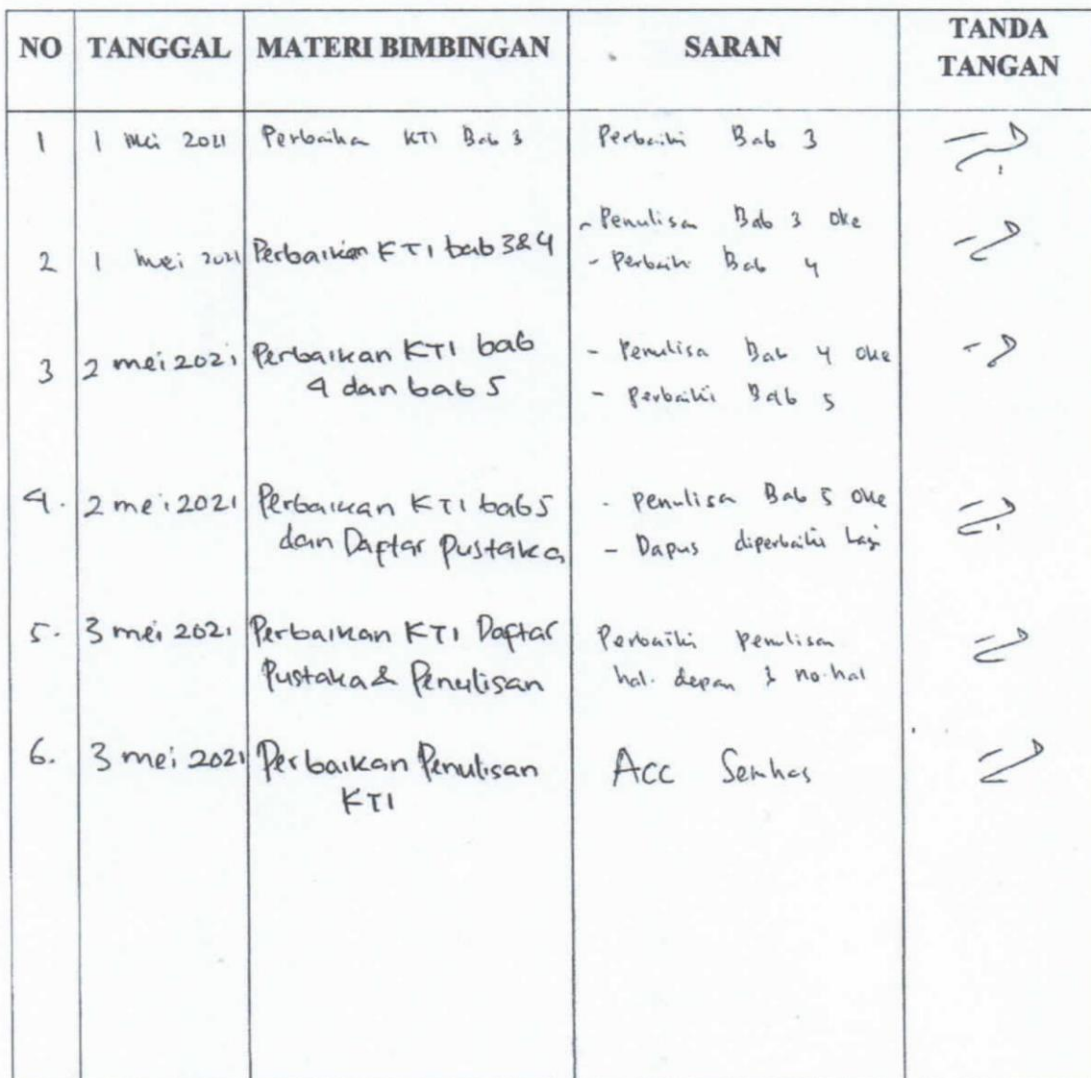 NO TANGGAL MATERI BIMBINGAN SARAN TANDA TANGAN
1 1 Mei 2021 Perbaika KTI Bab 3 Perbaiki Bab 3
2 1 Mei 2021 Perbaikan KTI bab 3&4
- Penulisa Bab 3 oke
- Perbaiki Bab 4
3 2 mei 2021 Perbaikan KTI bab
4 dan bab 5
- Penulisa Bab 4 oke
- Perbaiki Bab 5
4. 2 mei 2021 Perbaikan KTI bab 5
dan Daftar Pustaka
- Penulisa Bab 5 oke
- Dapus diperbaiki lagi
5. 3 mei 2021 Perbaikan KTI Daftar
Pustaka & Penulisan
Perbaiki penulisan
hal. depan & no. hal
6. 3 mei 2021 Perbaikan Penulisan
KTI
Acc Semhas